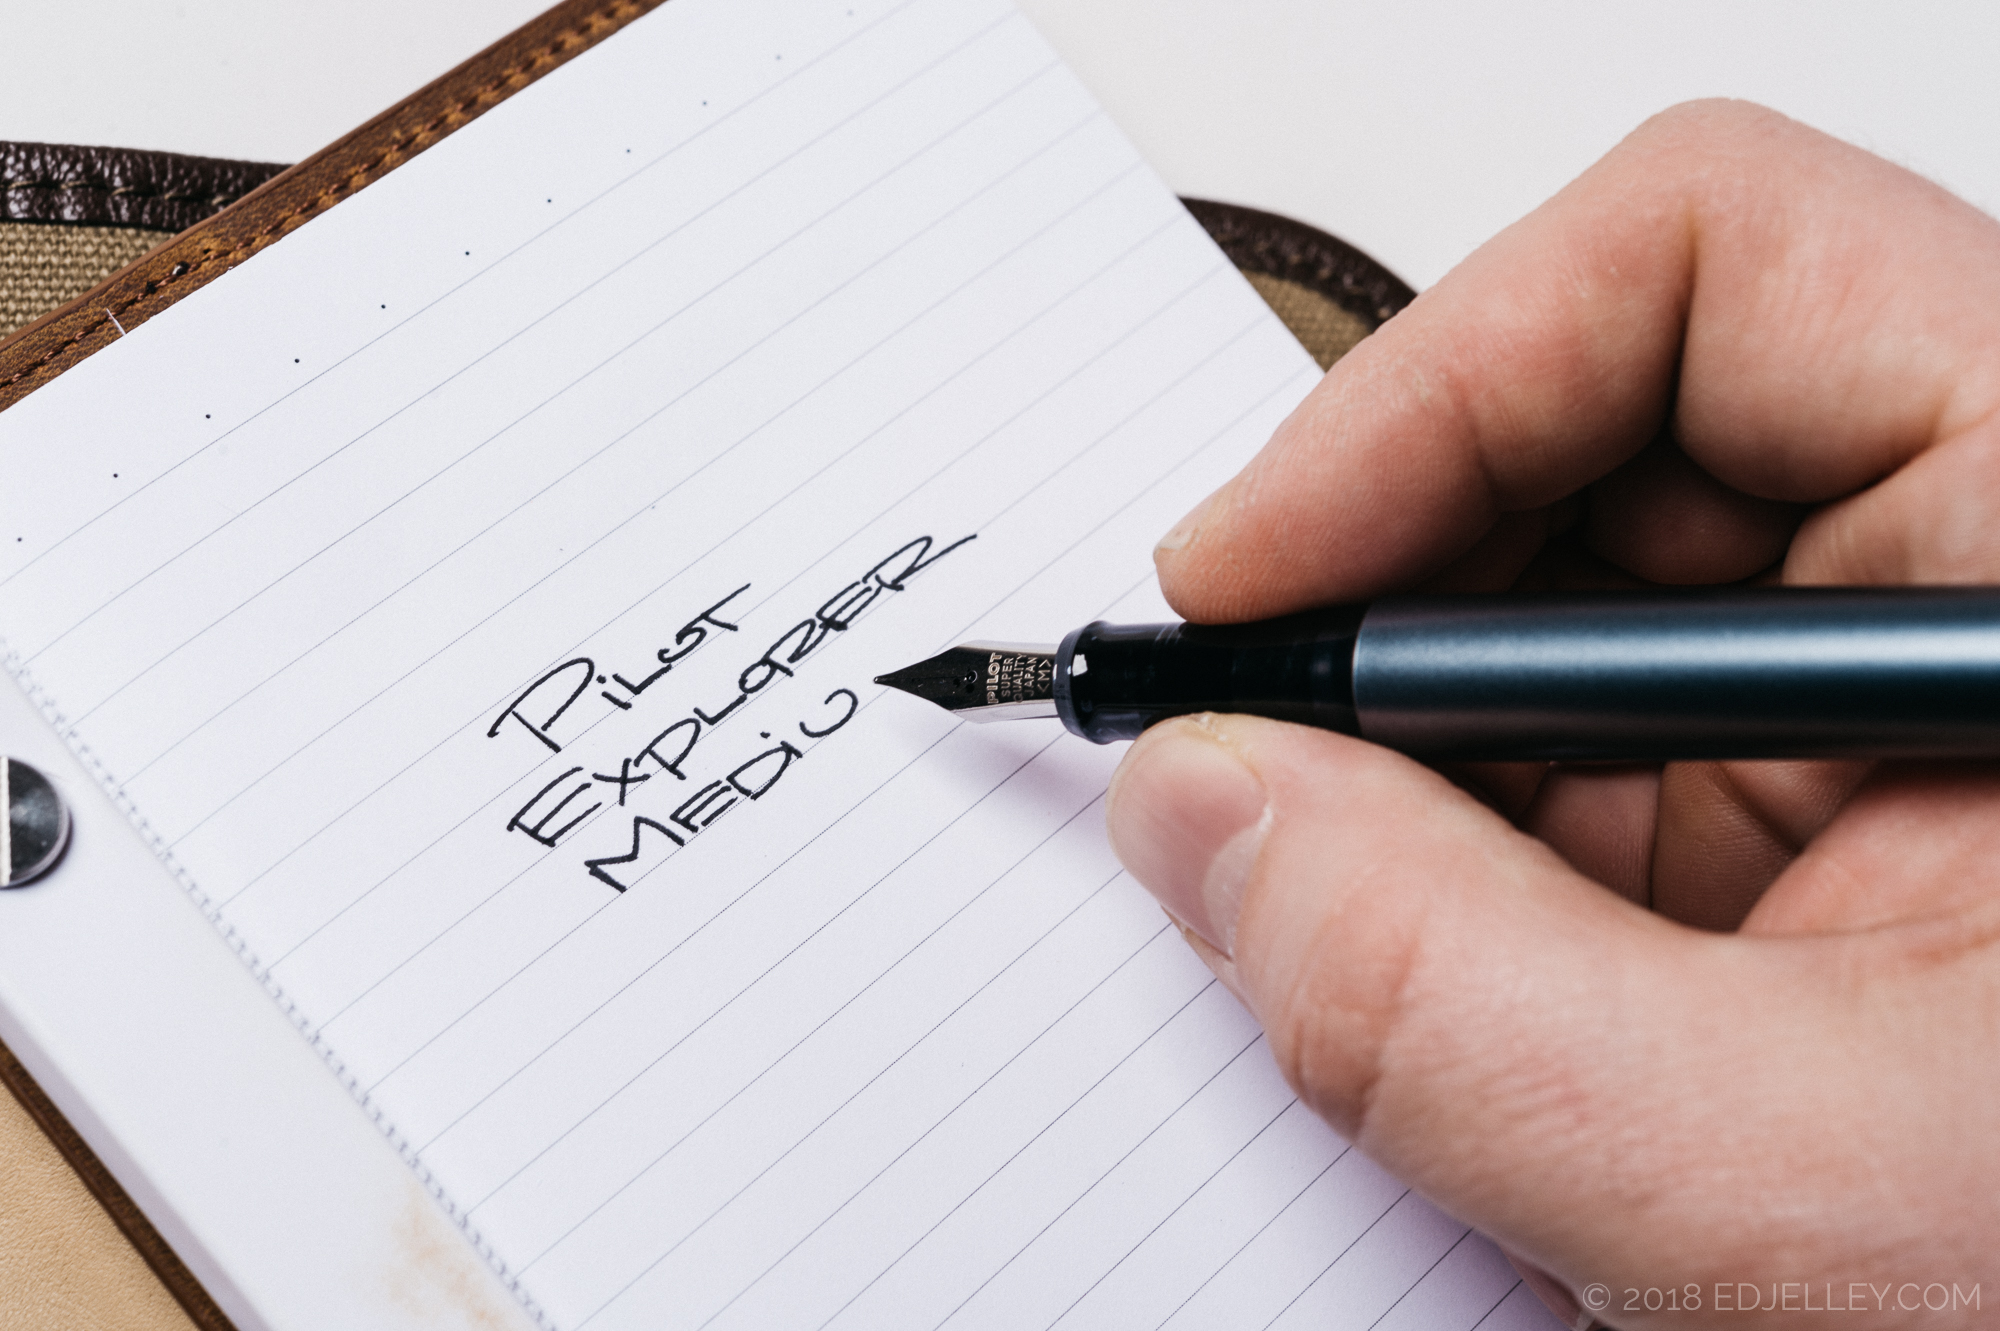 PILOT
EXPLORER
MEDIU
PILOT
SUPER
QUALITY
JAPAN
<M>
© 2018 EDJELLEY.COM